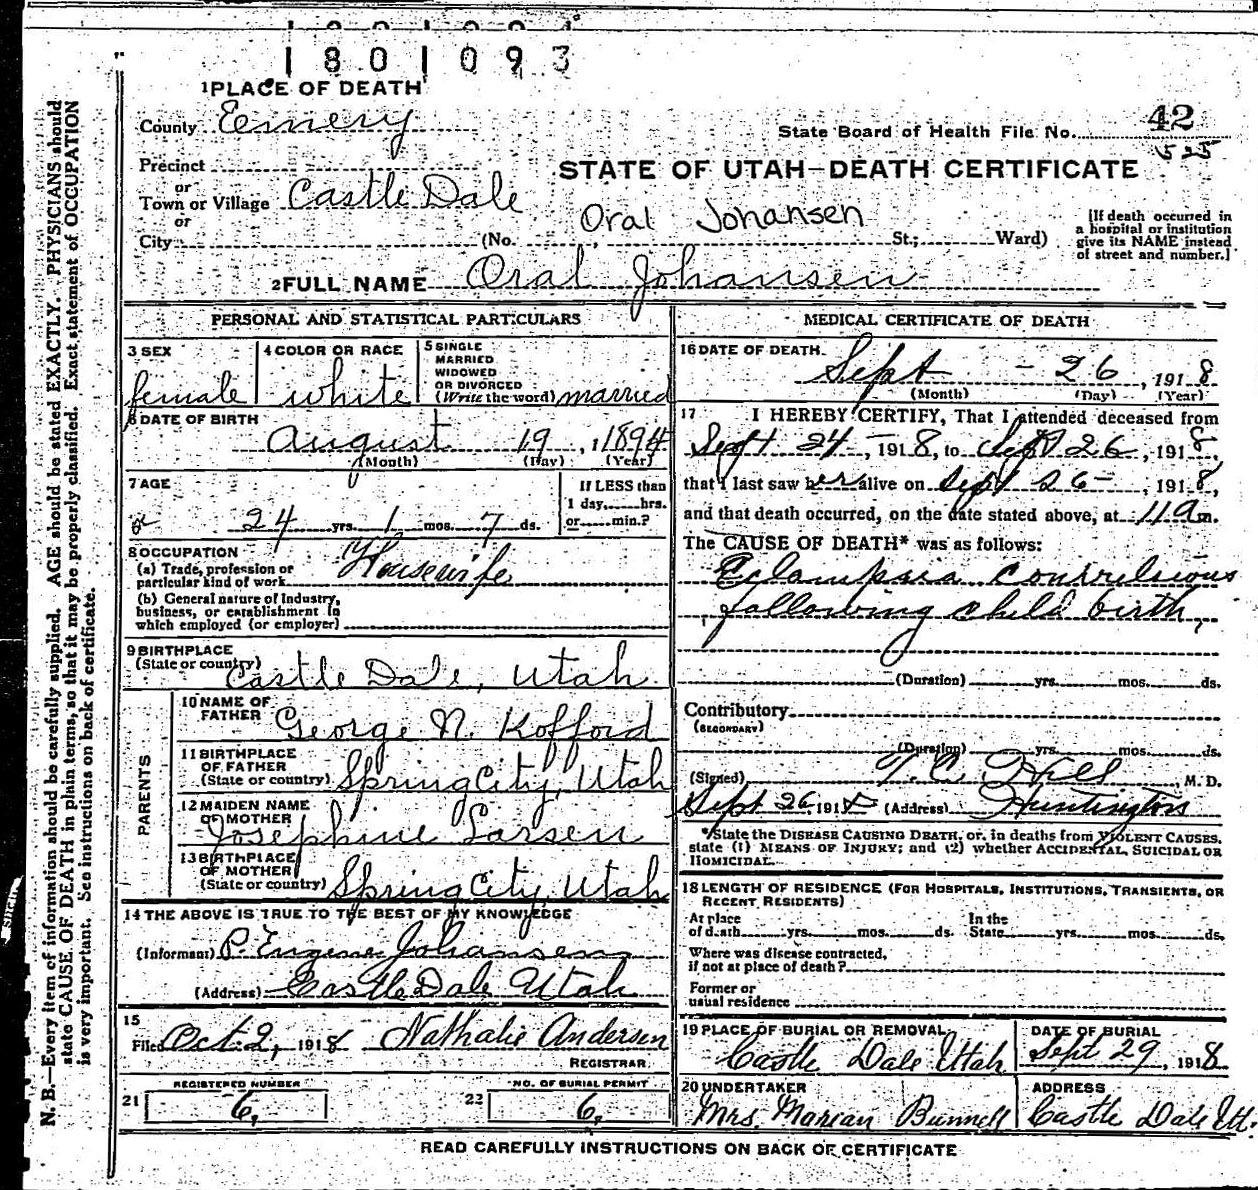 1801093
1 PLACE OF DEATH
County Emery
State Board of Health File No. 42
525
Precinct
or
STATE OF UTAH—DEATH CERTIFICATE
Town or Village Castle Dale
or
Oral Johansen
City (No. St.; Ward)
[If death occurred in
a hospital or institution
give its NAME instead
of street and number.]
2 FULL NAME Oral Johansen
PERSONAL AND STATISTICAL PARTICULARS
3 SEX
female
4 COLOR OR RACE
white
5 SINGLE
MARRIED
WIDOWED
OR DIVORCED
(Write the word) married
6 DATE OF BIRTH
August 19, 1894
(Month) (Day) (Year)
7 AGE
24 yrs. 1 mos. 7 ds.
If LESS than
1 day, hrs.
or min.?
8 OCCUPATION
(a) Trade, profession or
particular kind of work Housewife
(b) General nature of Industry,
business, or establishment in
which employed (or employer)
9 BIRTHPLACE
(State or country) Castle Dale, Utah
PARENTS
10 NAME OF
FATHER George N. Kofford
11 BIRTHPLACE
OF FATHER
(State or country) Spring City, Utah
12 MAIDEN NAME
OF MOTHER Josephine Larsen
13 BIRTHPLACE
OF MOTHER
(State or country) Spring City, Utah
14 THE ABOVE IS TRUE TO THE BEST OF MY KNOWLEDGE
(Informant) P. Eugene Johansen
(Address) Castle Dale Utah
15
Filed Oct. 2, 1918 Nathalie Andersen
REGISTRAR
REGISTERED NUMBER
21 6,
NO. OF BURIAL PERMIT
22 6,
MEDICAL CERTIFICATE OF DEATH
16 DATE OF DEATH
Sept - 26, 1918
(Month) (Day) (Year)
17 I HEREBY CERTIFY, That I attended deceased from
Sept 24 -, 1918, to Sept 26, 1918,
that I last saw her alive on Sept 26 -, 1918,
and that death occurred, on the date stated above, at 11 am.
The CAUSE OF DEATH* was as follows:
Eclampsia convulsions
following child birth,
(Duration) yrs. mos. ds.
Contributory
(SECONDARY)
(Duration) yrs. mos. ds.
(Signed) T. C. Hill, M. D.
Sept 26 1918 (Address) Huntington
*State the DISEASE CAUSING DEATH, or, in deaths from VIOLENT CAUSES,
state (1) MEANS OF INJURY; and (2) whether ACCIDENTAL, SUICIDAL OR
HOMICIDAL.
18 LENGTH OF RESIDENCE (FOR HOSPITALS, INSTITUTIONS, TRANSIENTS, OR
RECENT RESIDENTS)
At place In the
of death yrs. mos. ds. State yrs. mos. ds.
Where was disease contracted,
if not at place of death?
Former or
usual residence
19 PLACE OF BURIAL OR REMOVAL
Castle Dale Utah
DATE OF BURIAL
Sept 29, 1918
20 UNDERTAKER
Mrs. Marian Bunnell
ADDRESS
Castle Dale Ut.
READ CAREFULLY INSTRUCTIONS ON BACK OF CERTIFICATE
N. B.—Every item of information should be carefully supplied. AGE should be stated EXACTLY. PHYSICIANS should
state CAUSE OF DEATH in plain terms, so that it may be properly classified. Exact statement of OCCUPATION
is very important. See instructions on back of certificate.